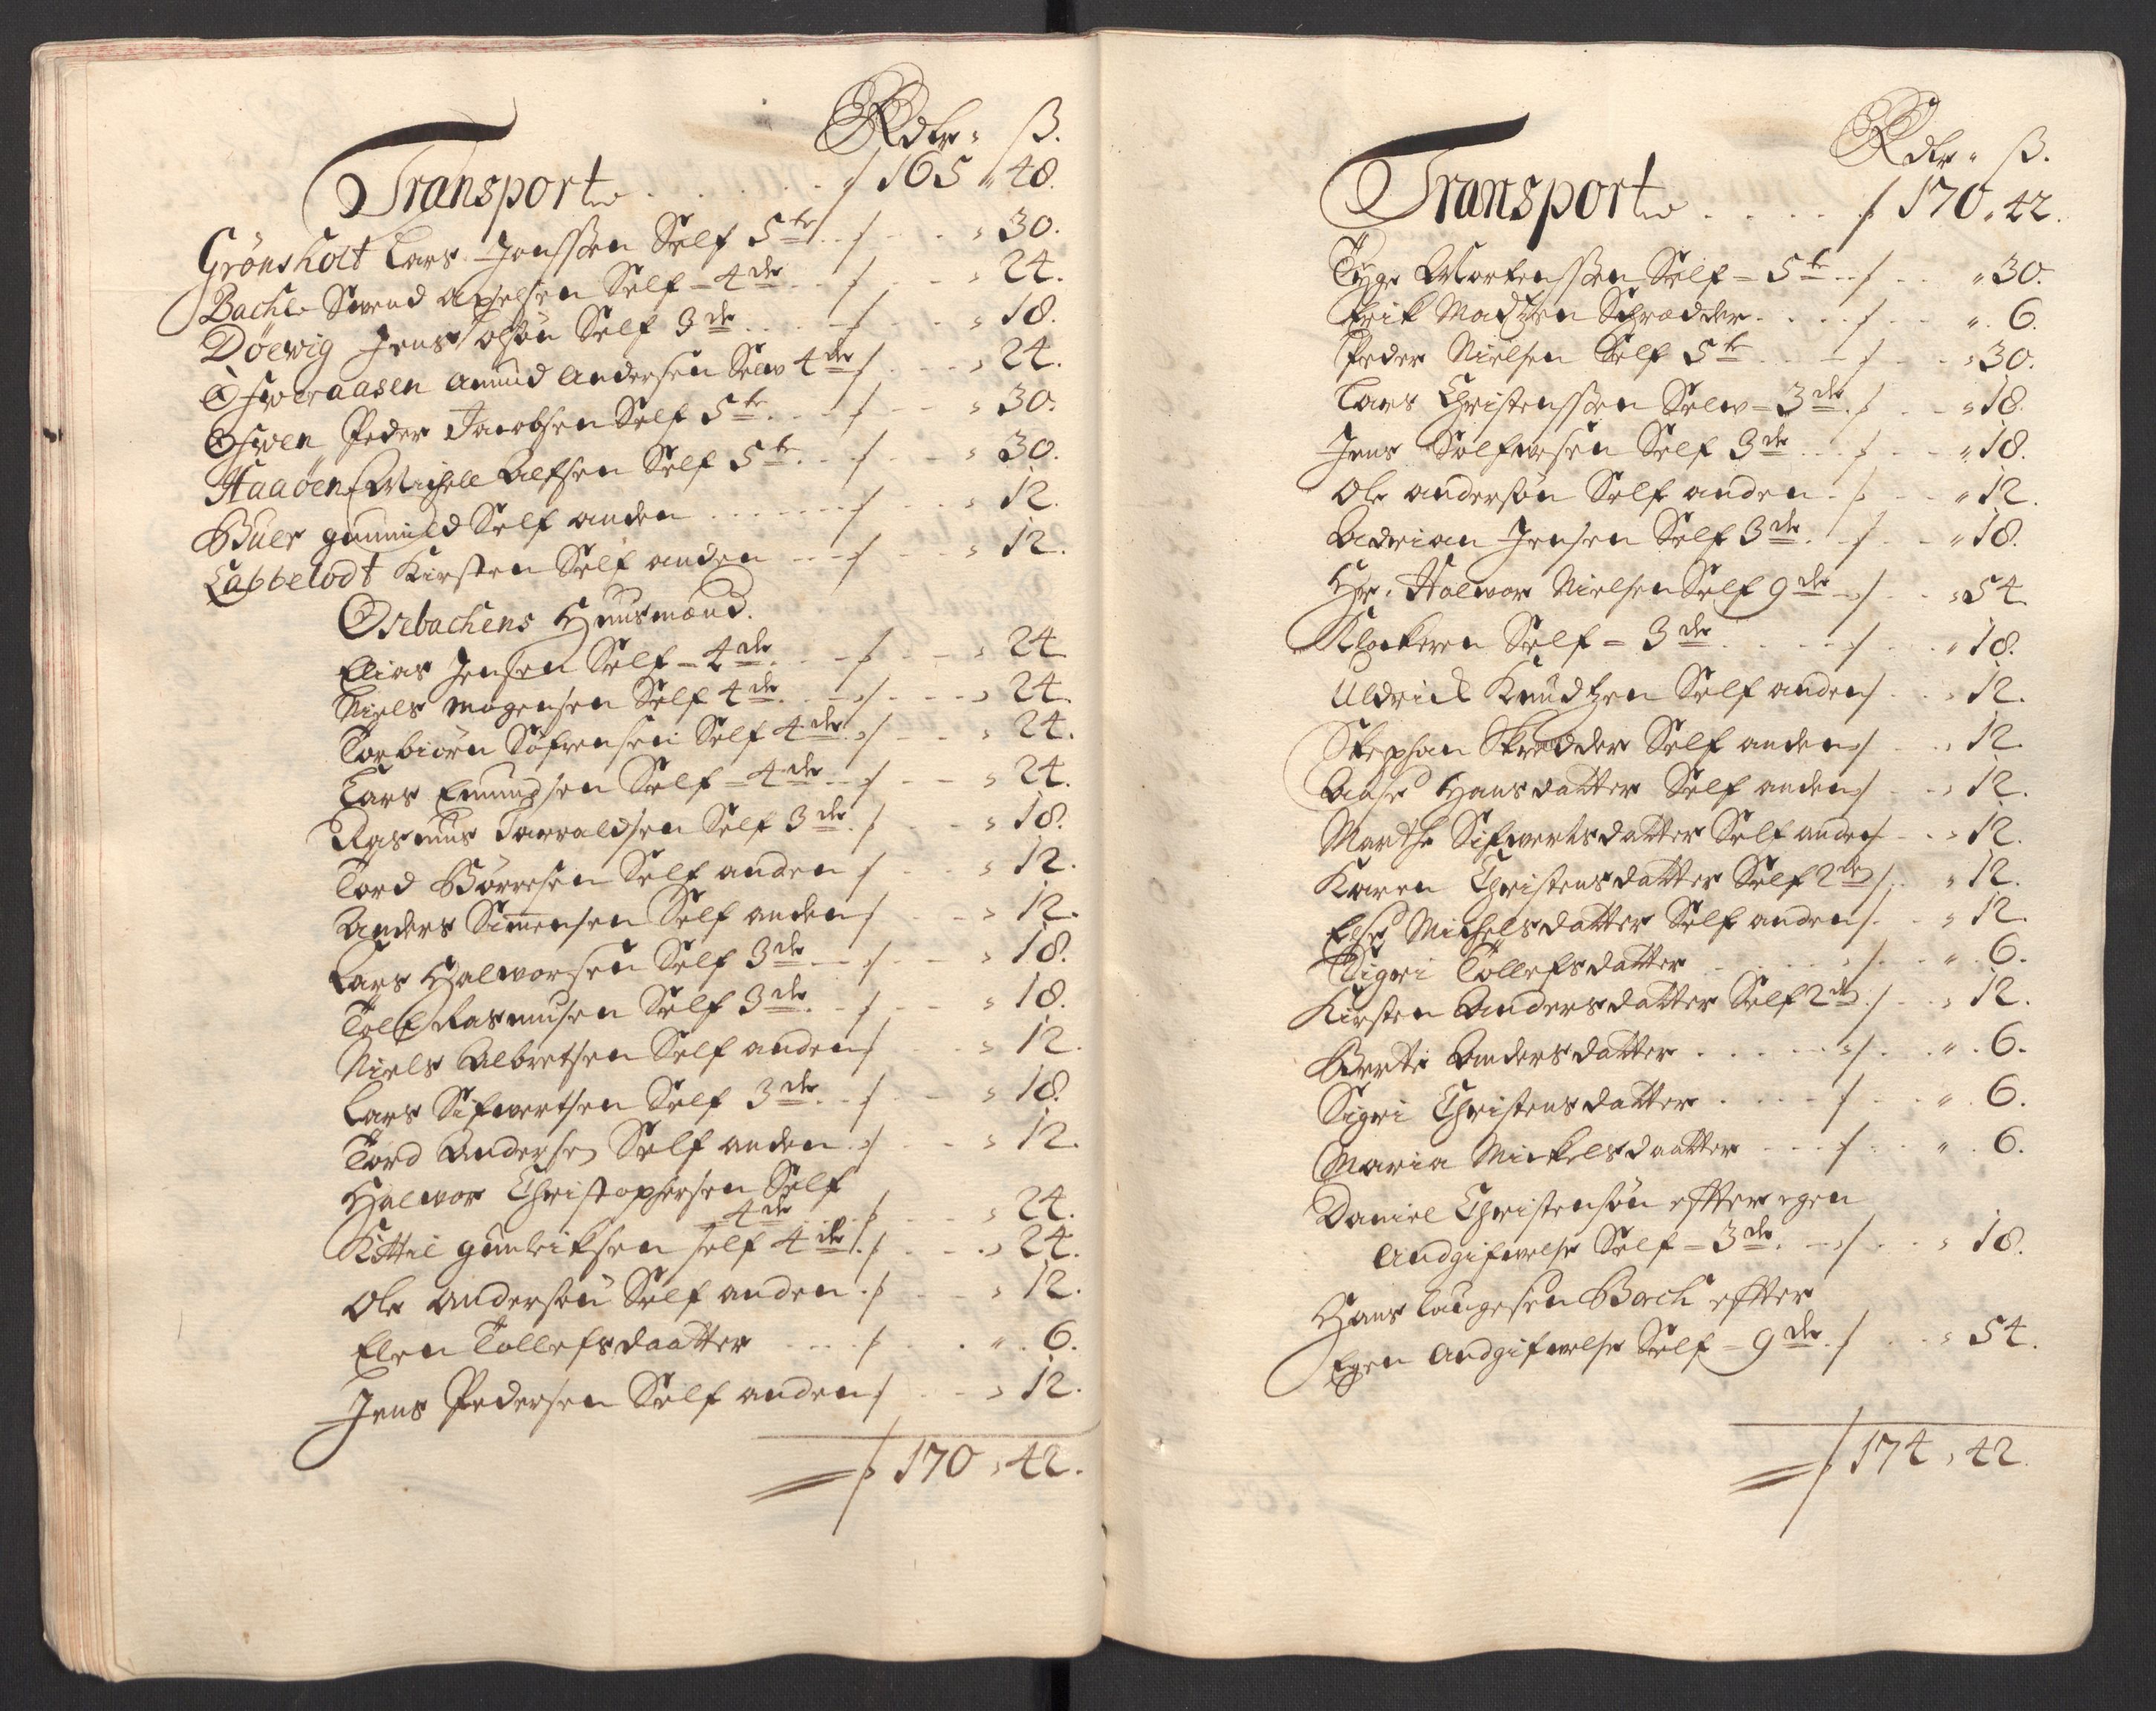 Rdlr. ß.
Transport . . . . . . 165 " 48.
Grönsholt Lars Jonssen Self 5te . . 30.
Bache Svend Axelsen Self - 4de . . 24.
Döewig Jens Olsön Self 3de . . . 18.
Ospweraasen Amund Andersen Selv 4de . . 24.
Peder Jacobsen Self 5te . . . 30.
Haaöen Michell Alfsen Self 5te . . . 30.
Buer gunnild Self anden . . . . . . 12.
Labbelodt Kirsten Self anden . . . 12.
Osebachens Huusmænd.
Elias Jensen Self - 4de . . . 24
Niels Mogensen Self 4de . . . 24.
Torbiörn Söfrensen Self 4de . . . 24.
Lars Emundsen Self - 4de . . . 24.
Rasmus Tarraldsen Self 3de . . . 18.
Tord Börresen Self anden . . . 12.
Anders Simensen Self anden . . . 12.
Lars Halworsen Self 3de . . . 18.
Tolf Rasmusen Self 3de . . . 18.
Niels Albretsen Self anden . . . 12.
Lars Sifwertsen Self 3de . . . 18.
Tord Andersen Self anden . . . 12.
Halwor Christophersen Self
4de . . . 24.
Kittil gunleiksen self 4de . . . 24.
Ole Andersön Self anden . . . 12.
Elen Tollefsdaatter . . . . . 6.
Jens Pedersen Self anden . . . 12.
170 , 42.
Rdlr. ß.
Transport . . . . 170 , 42.
Tyge Mortenssen Self - 5te . . . 30.
Erik Madtzen Schrædder . . . . 6.
Peder Nielsen Self 5te . . . 30.
Lars Christenssen Selv - 3de . . . 18.
Jens Sölfwesen Self 3de . . . 18.
Ole Andersön Self anden . . . 12.
Adrian Jensen Self 3de . . . 18.
Hr. Halwor Nielsen Self 9de . . . 54
Klockeren Self = 3de . . . . 18.
Uldrick Knudtzen Self anden . . 12.
Stephan Skrædder Self anden . . 12.
Aase Hansdatter Self anden . . 12.
Marthe Sifwertsdatter Self anden . . 12.
Karen Christensdatter Self 2den . . 12.
Else Michelsdatter Self anden . . 12.
Sigri Tollefsdatter . . . . . 6.
Kirsten Andersdatter Self 2de . . 12.
Berte Andersdatter . . . . . . 6.
Sigri Christensdatter . . . . . 6.
Maria Mickelsdaatter . . . . 6.
Daniel Christensön effter egen
Andgifwelse Self - 3de . . . 18.
Hans Laugesen Bach effter
Egen Andgifwelse Self - 9de . . . 54.
174 , 42.